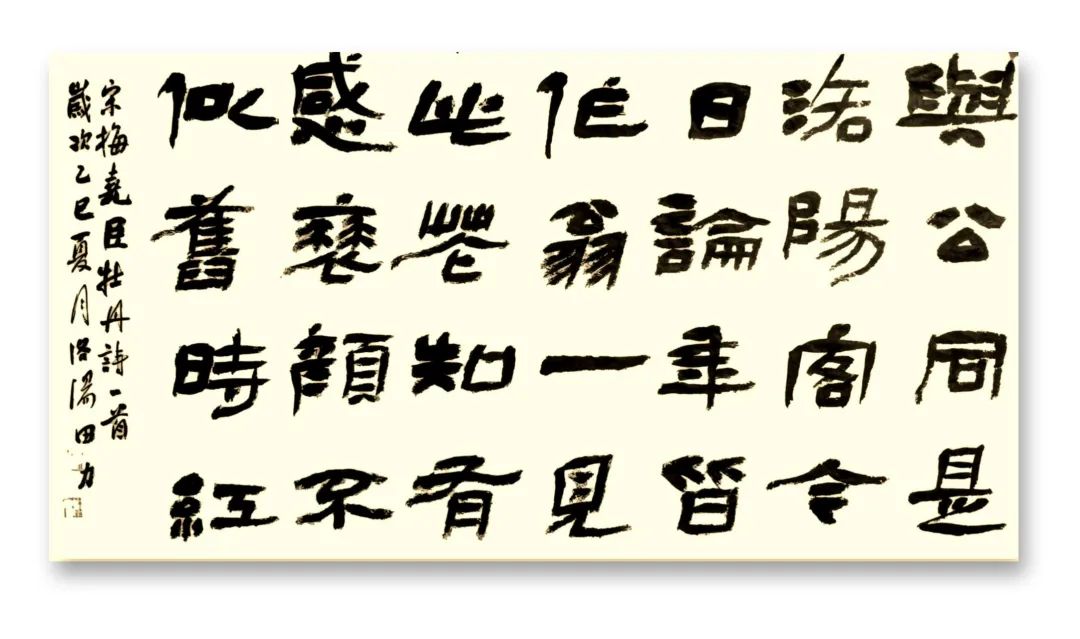 與公同是
洛陽客今
日論年皆
作翁一見
此花知有
感衰顏不
似舊時紅
宋梅堯臣牡丹詩一首
歲次乙巳夏月洛陽田力